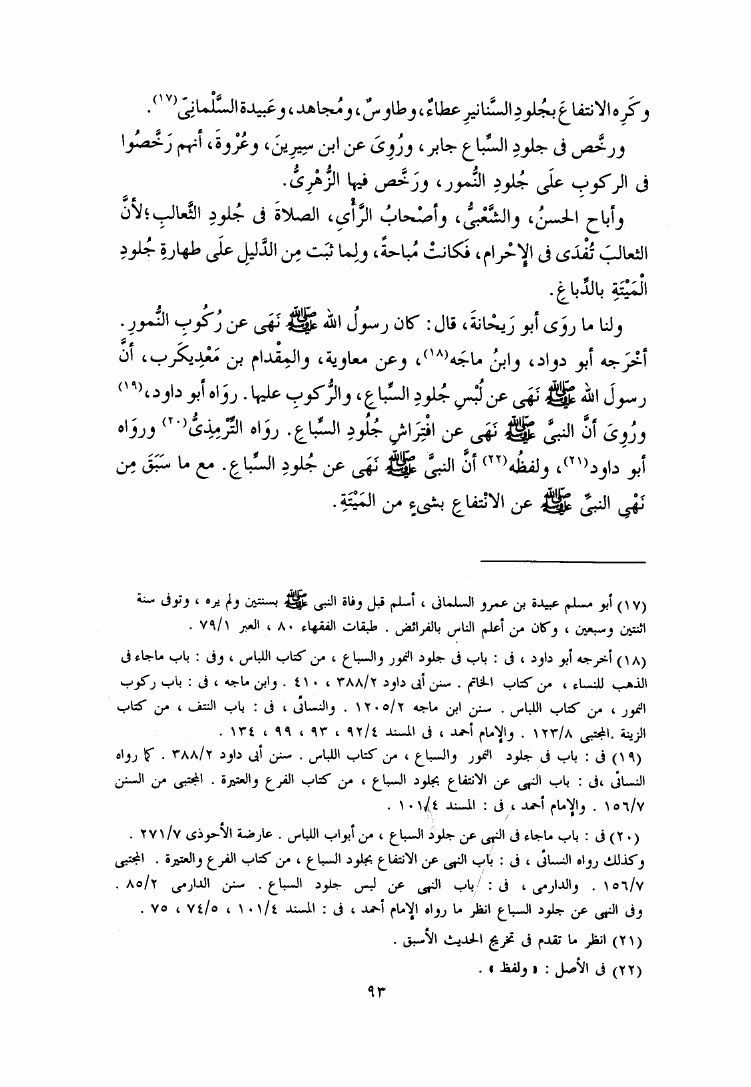 وكَرِه الانتفاعَ بجُلودِ السَّنانيرِ عطاءٌ، وطاوسٌ، ومُجاهد، وعَبيدة السَّلْمانِىّ(١٧).
ورخَّص فى جلودِ السِّباع جابر، ورُوِىَ عن ابن سِيرِينَ، وعُرْوةَ، أنهم رَخَّصُوا
فى الركوبِ علَى جُلودِ النُّمور، ورَخَّص فيها الزُّهْرِىُّ.
وأباح الحسنُ، والشَّعْبىُّ، وأصْحابُ الرَّأْىِ، الصلاةَ فى جُلودِ الثَّعالبِ؛ لأنَّ
الثعالبَ تُفْدَى فى الإِحْرام، فَكانتْ مُباحةً، ولِما ثبَت مِن الدَّليلِ علَى طهارةِ جُلودِ
الْمَيْتَةِ بالدِّباغِ.
ولنا ما روَى أبو رَيحْانةَ، قال: كان رسولُ الله ﷺ نَهَى عن رُكُوبِ النُّمورِ.
أخْرَجه أبو دواد، وابنُ ماجَه(١٨)، وعن معاوية، والمِقْدام بن مَعْدِيكَرِب، أنَّ
رسولَ الله ﷺ نَهَى عن لُبْسِ جُلودِ السِّباعِ، والرُّكوبِ عليها. روَاه أبو داود،(١٩)
ورُوِىَ أنَّ النبىَّ ﷺ نَهَى عن افْتِراشِ جُلُودِ السِّباعِ. روَاه التِّرْمِذِىُّ(٢٠) وروَاه
أبو داود(٢١)، ولفظُه(٢٢) أنَّ النبىَّ ﷺ نَهَى عن جُلودِ السِّباعِ. مع ما سَبَقَ مِن
نَهْىِ النبىِّ ﷺ عن الانْتفاعِ بشىءٍ من المَيْتَةِ.
(١٧) أبو مسلم عبيدة بن عمرو السلمانى ، أسلم قبل وفاة النبى ﷺ بسنتين ولم يره ، وتوفى سنة
اثنتين وسبعين ، وكان من أعلم الناس بالفرائض . طبقات الفقهاء ٨٠ ، العبر ٧٩/١ .
(١٨) أخرجه أبو داود ، فى : باب فى جلود النمور والسباع ، من كتاب اللباس ، وفى : باب ماجاء فى
الذهب للنساء ، من كتاب الخاتم . سنن أبى داود ٣٨٨/٢ ، ٤١٠ . وابن ماجه ، فى : باب ركوب
النمور ، من كتاب اللباس . سنن ابن ماجه ١٢٠٥/٢ . والنسائى ، فى : باب النتف ، من كتاب
الزينة .المجتبى ١٢٣/٨ . والإمام أحمد ، فى المسند ٩٢/٤ ، ٩٣ ، ٩٩ ، ١٣٤ .
(١٩) فى : باب فى جلود النمور والسباع ، من كتاب اللباس . سنن أبى داود ٣٨٨/٢ . كما رواه
النسائى ،فى : باب النهى عن الانتفاع بجلود السباع ، من كتاب الفرع والعتيرة . المجتبى من السنن
١٥٦/٧ . والإمام أحمد ، فى : المسند ١٠١/٤ .
(٢٠) فى : باب ماجاء فى النهى عن جلود السباع ، من أبواب اللباس . عارضة الأحوذى ٢٧١/٧ .
وكذلك رواه النسائى ، فى : باب النهى عن الانتفاع بجلود السباع ، من كتاب الفرع والعتيرة . المجتبى
١٥٦/٧ . والدارمى ، فى : باب النهى عن لبس جلود السباع . سنن الدارمى ٨٥/٢ .
وفى النهى عن جلود السباع انظر ما رواه الإمام أحمد ، فى : المسند ١٠١/٤ ، ٧٤/٥ ، ٧٥ .
(٢١) انظر ما تقدم فى تخريج الحديث الأسبق .
(٢٢) فى الأصل : « ولفظ » .
٩٣